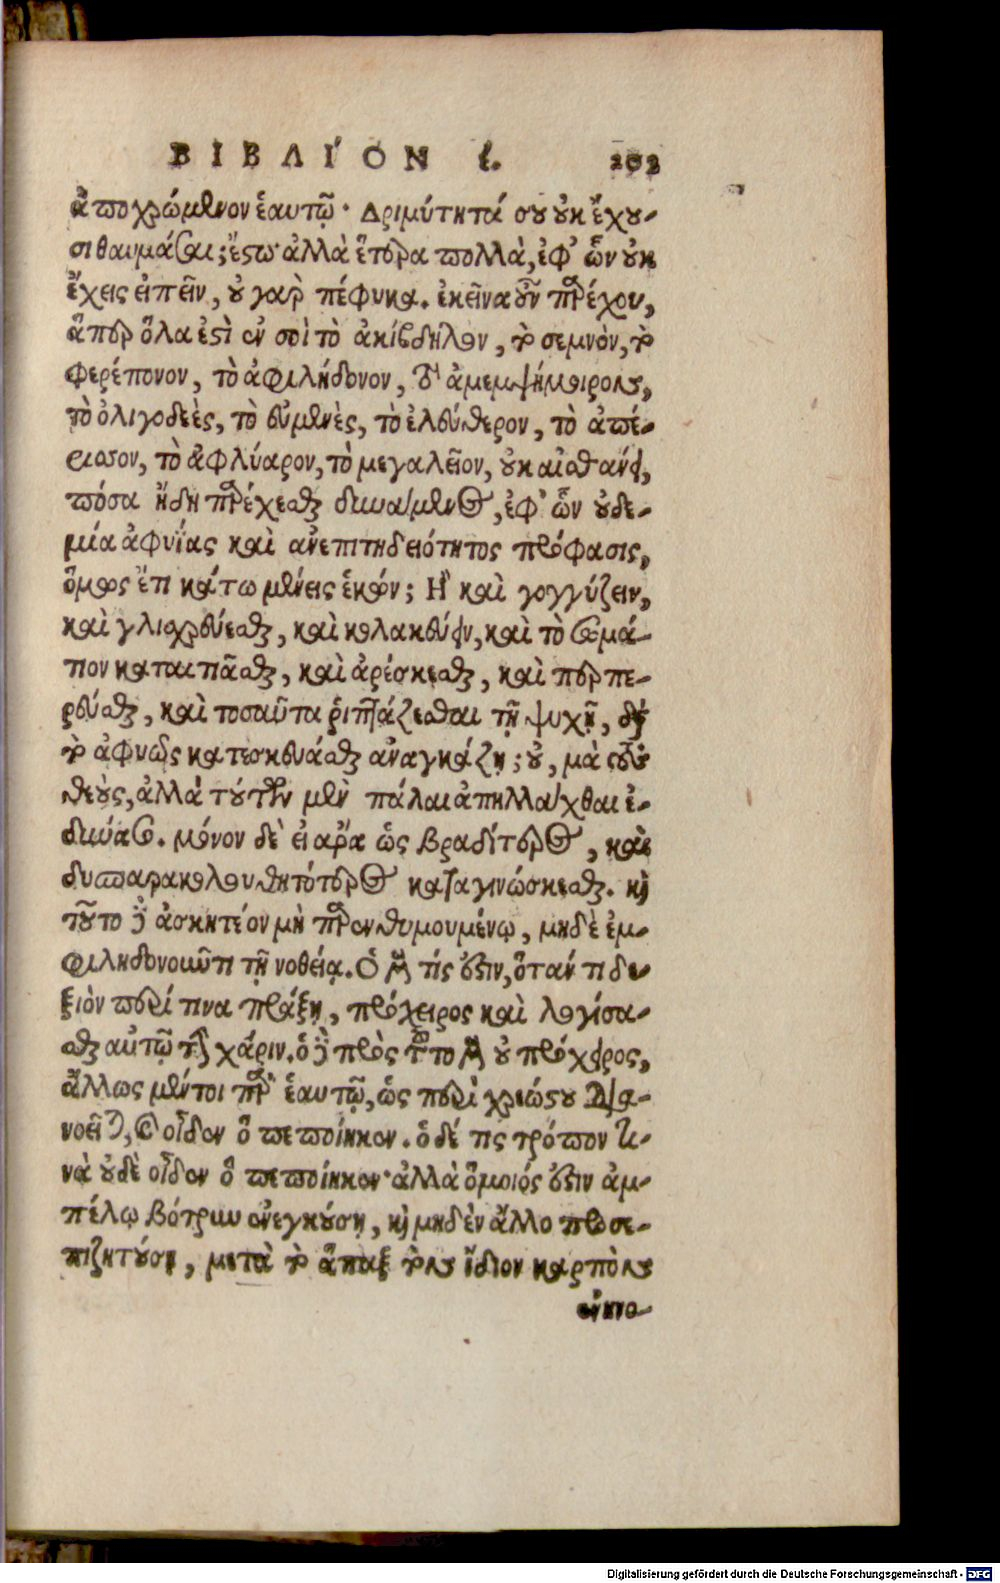 ΒΙΒΛΙΌΝ έ. 202
ἀποχρώμενον ἑαυτῷ· Δριμύτητά σου οὐκ ἔχου-
σι θαυμάσαι; ἔστω· ἀλλὰ ἕτερα πολλὰ, ἐφ' ὧν οὐκ
ἔχεις εἰπεῖν, οὐ γὰρ πέφυκα. ἐκεῖνα οὖν παρέχου,
ἅπερ ὅλα ἐστὶ ἐν σοὶ τὸ ἀκίβδηλον, τὸ σεμνὸν, τὸ
φερέπονον, τὸ ἀφιλήδονον, τὸ ἀμεμψίμοιρον,
τὸ ὀλιγοδεὲς, τὸ εὐμενὲς, τὸ ἐλεύθερον, τὸ ἀπέ-
ρισσον, τὸ ἀφλύαρον, τὸ μεγαλεῖον, οὐκ αἰσθάνῃ,
πόσα ἤδη παρέχεσθαι δυνάμενος, ἐφ' ὧν οὐδε-
μία ἀφυΐας καὶ ἀνεπιτηδειότητος πρόφασις,
ὅμως ἔτι κάτω μένεις ἑκών; Ἢ καὶ γογγύζειν,
καὶ γλισχρεύεσθαι, καὶ κολακεύειν, καὶ τὸ σωμά-
τιον καταιτιᾶσθαι, καὶ ἀρέσκεσθαι, καὶ περπε-
ρεύεσθαι, καὶ τοσαῦτα ῥιπτάζεσθαι τῇ ψυχῇ, διὰ
τὸ ἀφυῶς κατεσκευάσθαι ἀναγκάζῃ; οὐ, μὰ τοὺς
θεοὺς, ἀλλὰ τούτων μὲν πάλαι ἀπηλλάχθαι ἐ-
δύνασο. μόνον δὲ εἰ ἄρα ὡς βραδύτερος, καὶ
δυσπαρακολουθητότερος καταγινώσκεσθαι. καὶ
τοῦτο δὲ ἀσκητέον μὴ παρενθυμουμένῳ, μηδὲ ἐμ-
φιληδονοῦντι τῇ νοθείᾳ. Ὁ μέν τίς ἐστιν, ὅτάν τι δε-
ξιὸν περί τινα πράξῃ, πρόχειρος καὶ λογίσα-
σθαι αὐτῷ τὴν χάριν. ὁ δὲ πρὸς τοῦτο μὲν οὐ πρόχειρος,
ἄλλως μέντοι παρ' ἑαυτῷ, ὡς περὶ χρεώστου δια-
νοεῖται, καὶ οἶδεν ὃ πεποίηκεν. ὁ δέ τις τρόπον τι-
νὰ οὐδὲ οἶδεν ὃ πεποίηκεν· ἀλλὰ ὅμοιός ἐστιν ἀμ-
πέλῳ βότρυν ἐνεγκούσῃ, καὶ μηδὲν ἄλλο προσε-
πιζητούσῃ, μετὰ τὸ ἅπαξ τὸν ἴδιον καρπὸν
ἐνηνο-
Digitalisierung gefördert durch die Deutsche Forschungsgemeinschaft - DFG